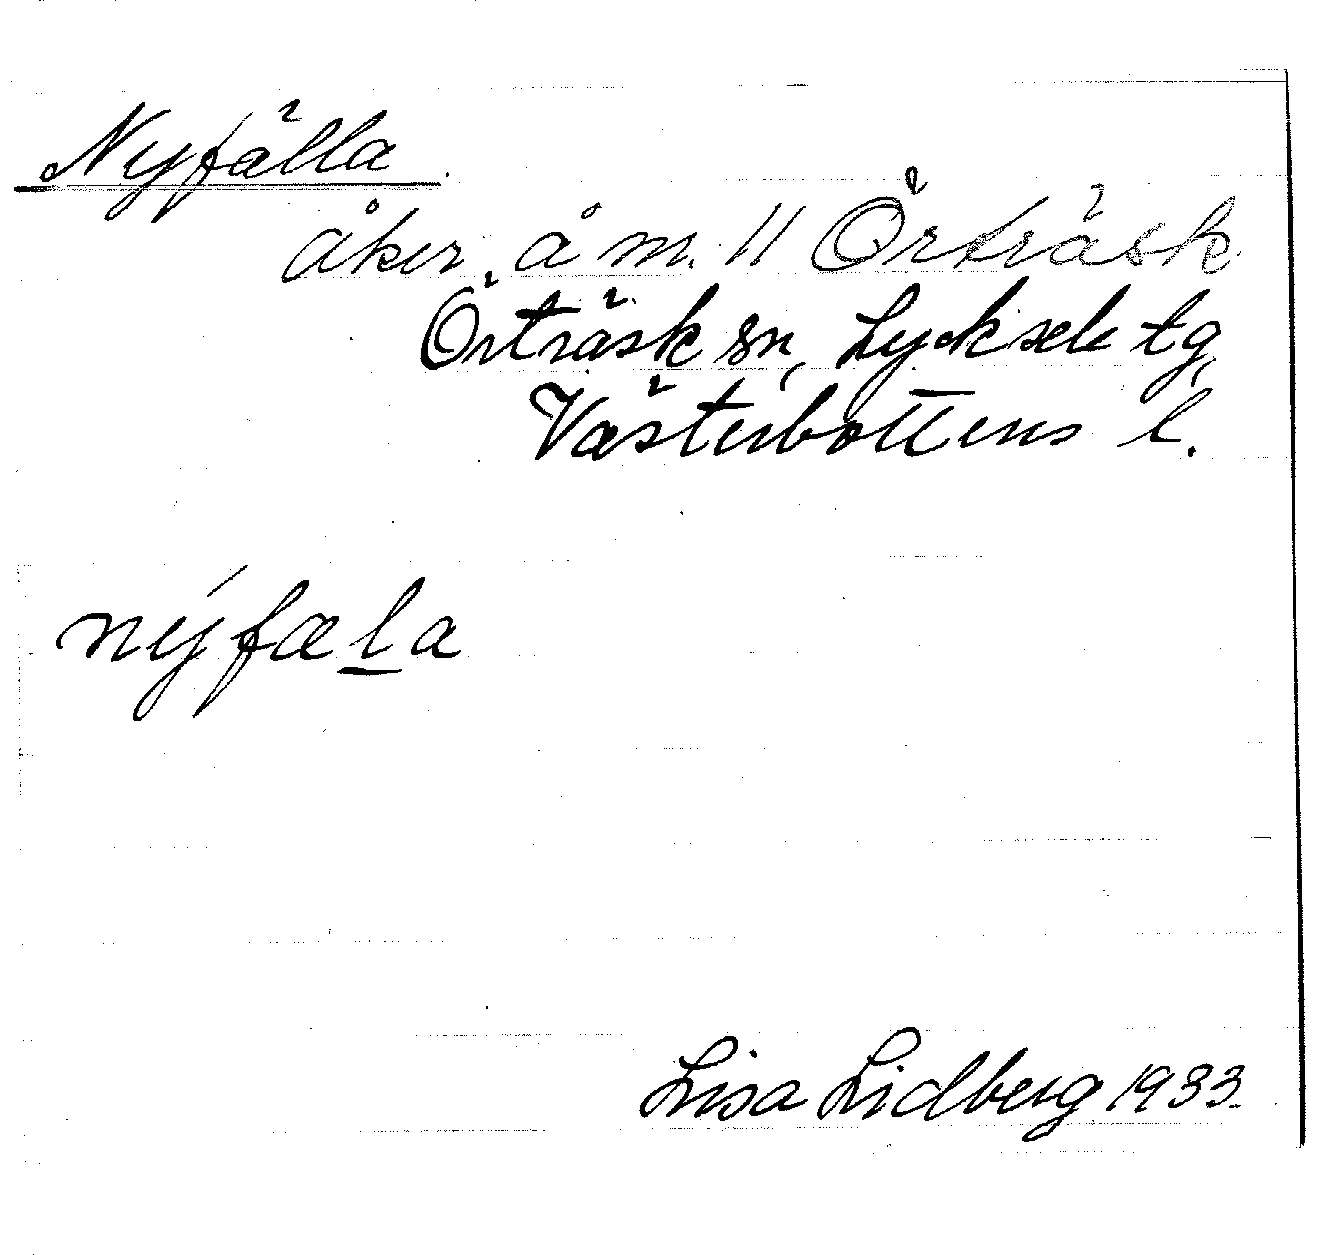 Nyfälla.
åker, å nr. 11 Örträsk
Örträsk sn, Lycksele tg,
Västerbottens l.
nýfæla
Lisa Lidberg 1933.